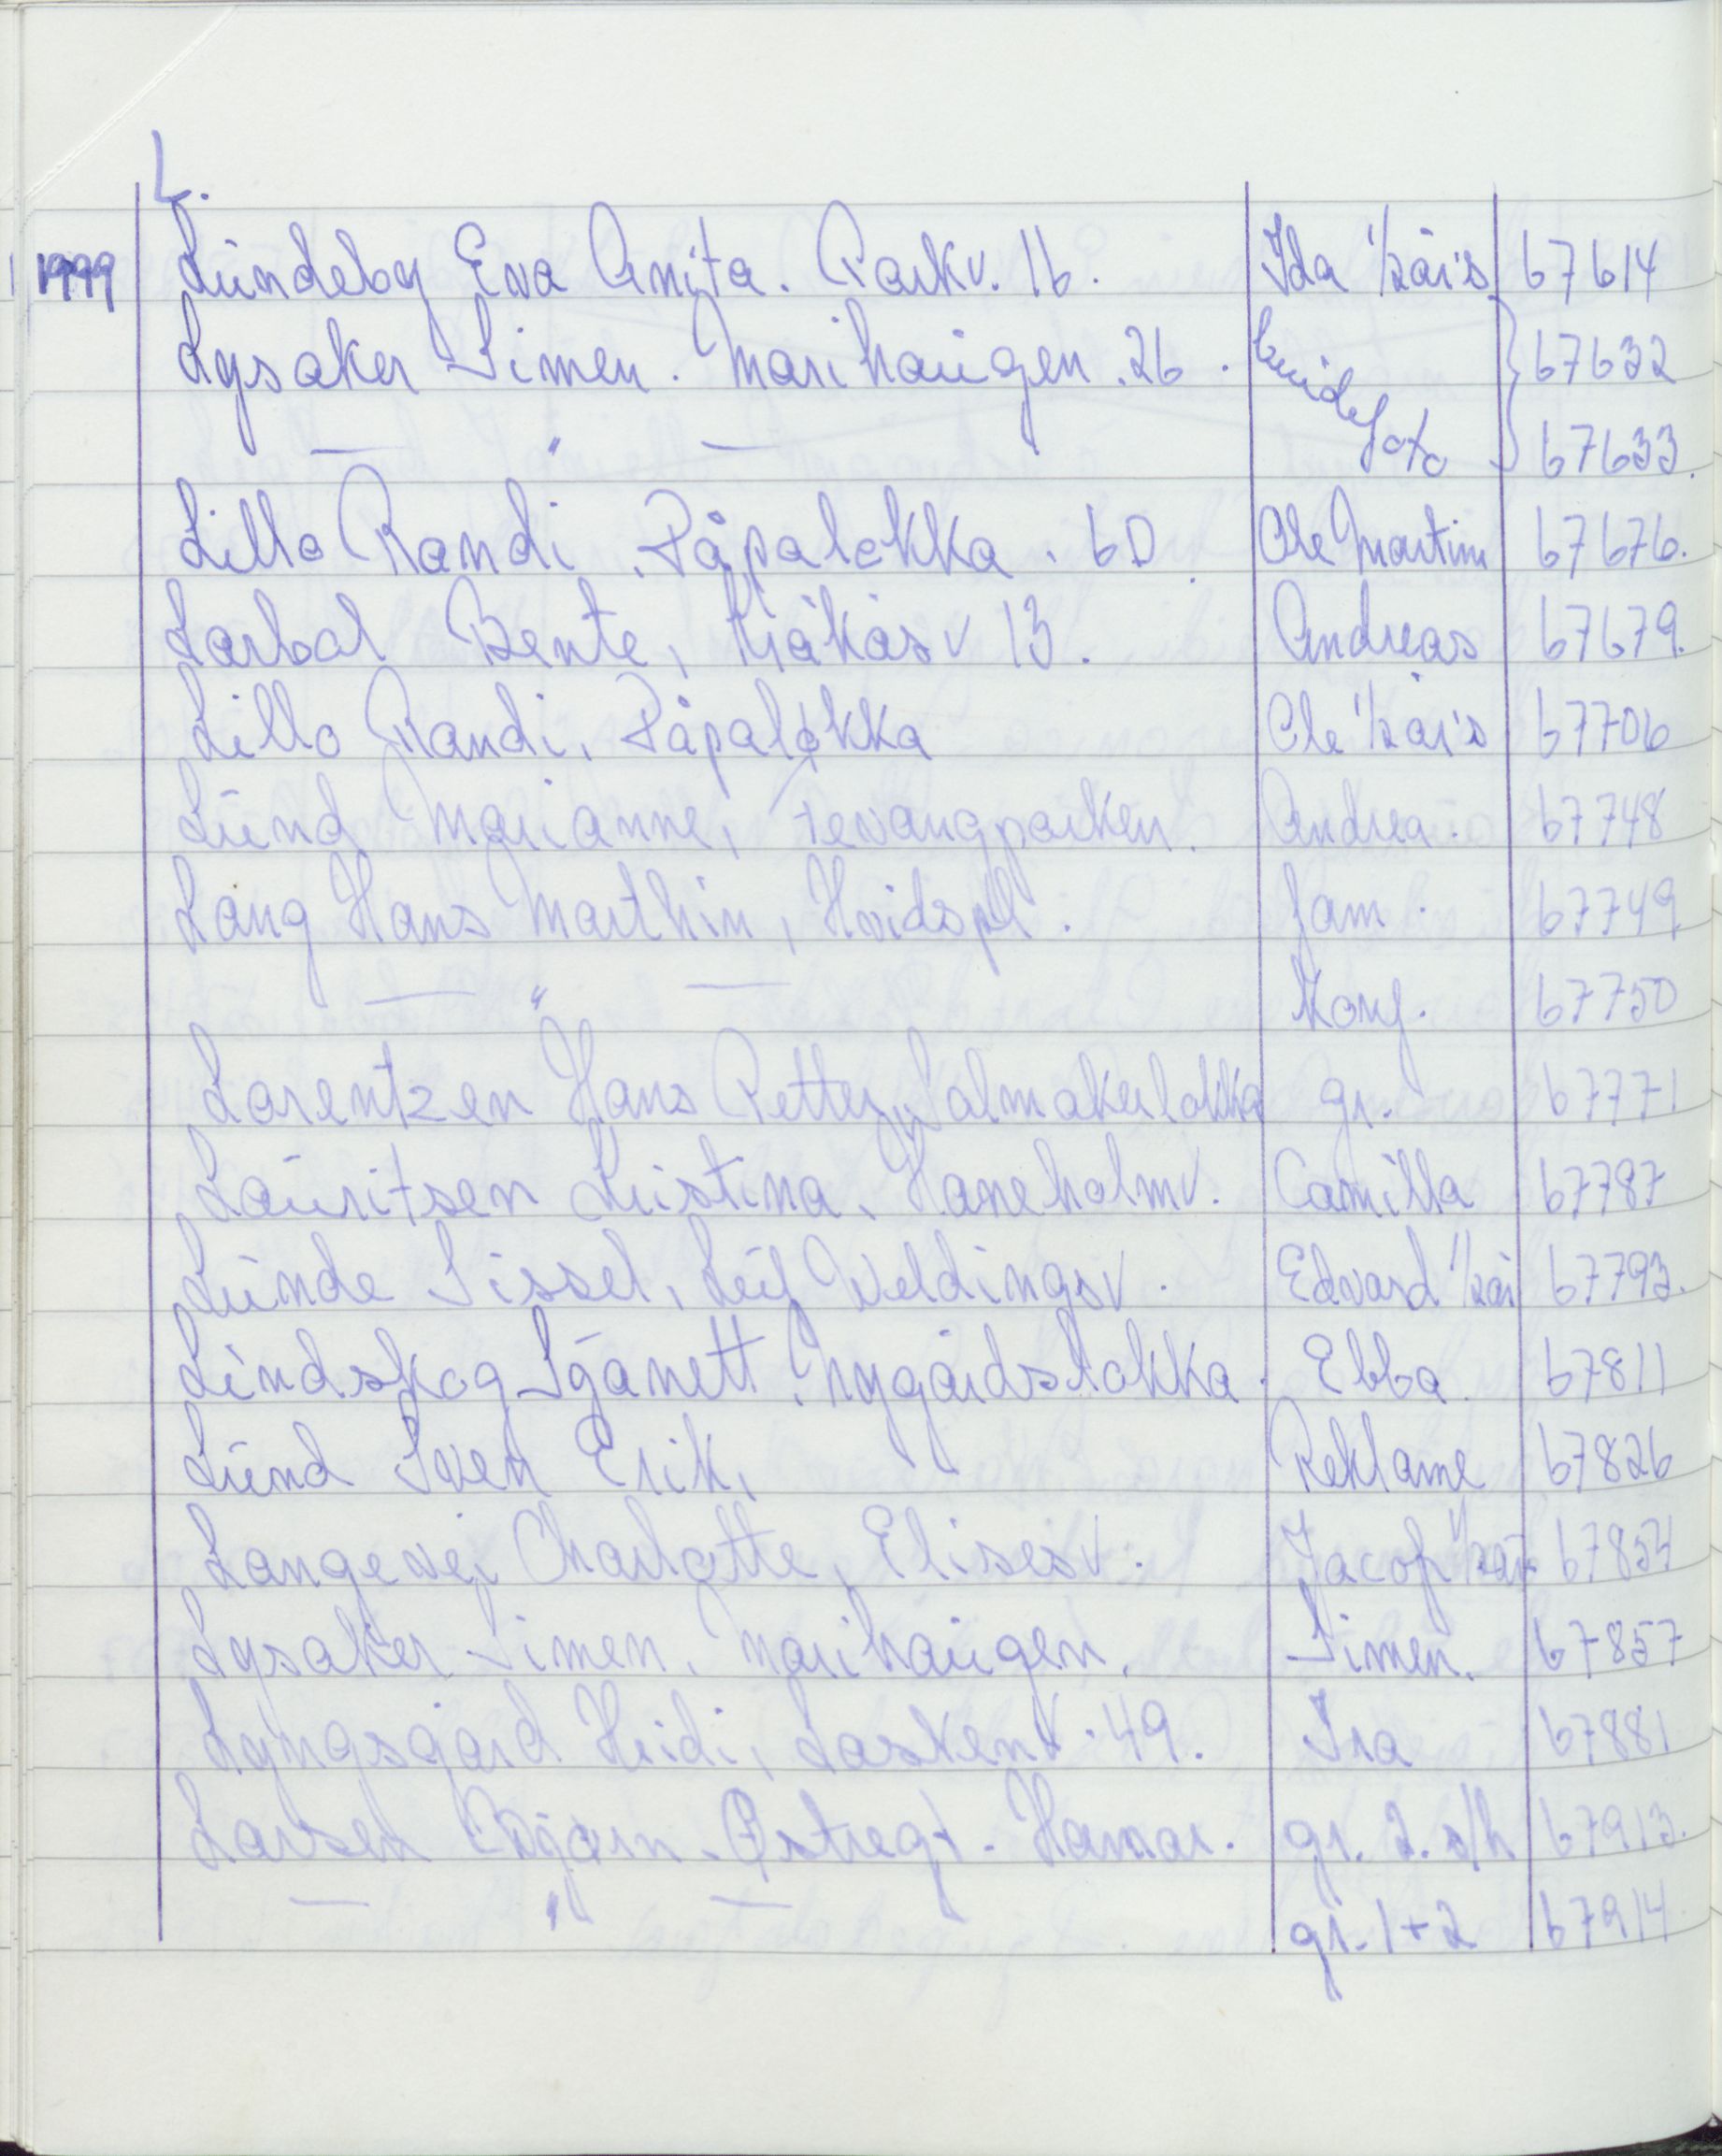 L.
1999 Lundeby Eva Anita. Parkv. 16. Ida 1/2 år's 67614
Lysaker Simen. Marihaugen. 26. brudefoto 67632
— " — 67633.
Lillo Randi. Påpaløkka. 6D. Ole Martin 67676.
Larbol Bente, Kråkåsv 13. Andreas 67679.
Lillo Randi. Påpaløkka Ole 1/2 år's 67706
Lund Marianne, Revangparken. Andrea. 67748
Lang Hans Marthin, Hvidspl. fam. 67749
— " — Konf. 67750
Lorentzen Hans Petter, Salmakerløkka gr. 67771
Lauritsen Kristina. Haneholmv. Camilla 67787
Lunde Sissel, Leif Weldingsv. Edvard 1/2 år 67793.
Lindskog Sjanett. Nygårdsløkka. Ebba. 67811
Lund Sven Erik, Reklame 67826
Langevei Charlotte, Elisesv. Jacop 1/2 år 67854
Lysaker Simen. Marihaugen. Simen. 67857
Lyngsgård Heidi, Laskenv. 49. Ira 67881
Larsen Bjørn. Østregt. Hamar. gr. 2. s/h 67913.
— " — gr. 1+2 67914